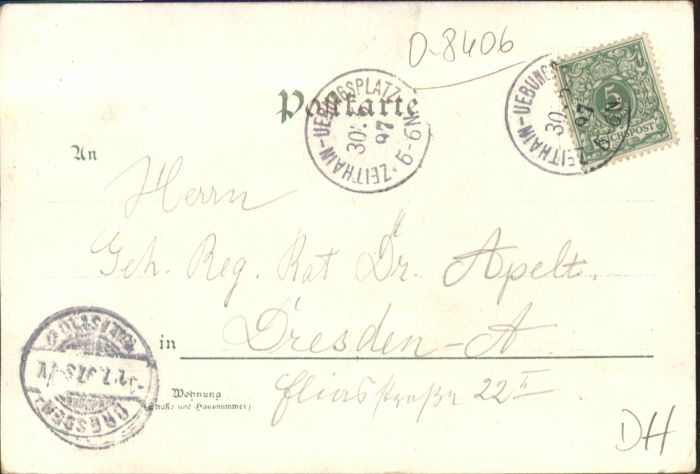 O-8406
Postkarte
ZEITHAIN-UEBUNGSPLATZ
30.
97
5-6N
ZEITHAIN-UEBUNGS
30.
97
5-6N
5
REICHSPOST
An
Herrn
Geh. Reg. Rat Dr. Apelt.
in Dresden-A
Wohnung
(Straße und Hausnummer)
Eliasstraße 22 II
DRESDEN
DH